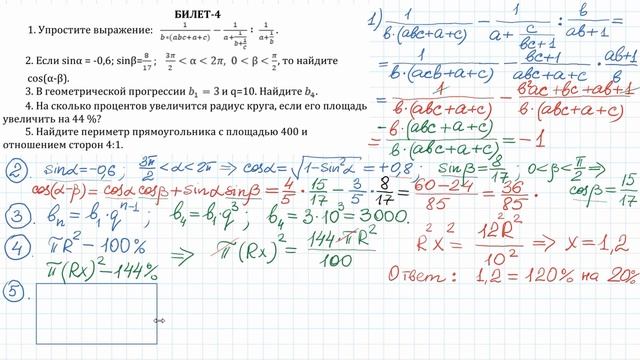 БИЛЕТ-4
1. Упростите выражение: 1/(b∙(abc+a+c)) − 1/(a+1/(b+1/c)) : 1/(a+1/b).
2. Если sinα = -0,6; sinβ=8/17; 3π/2 < α < 2π, 0 < β < π/2, то найдите
cos(α-β).
3. В геометрической прогрессии b₁ = 3 и q=10. Найдите b₄.
4. На сколько процентов увеличится радиус круга, если его площадь
увеличить на 44 %?
5. Найдите периметр прямоугольника с площадью 400 и
отношением сторон 4:1.
1) 1/(b·(abc+a+c)) − 1/(a+c/(bc+1)) : b/(ab+1) =
= 1/(b·(acb+a+c)) − (bc+1)/(abc+a+c) · (ab+1)/b =
= 1/(b(abc+a+c)) − (b²ac+bc+ab+1)/(b(abc+a+c)) =
= −b(abc+a+c)/(b(abc+a+c)) = −1
2. sinα=−0,6; 3π/2<α<2π ⇒ cosα=√(1−sin²α)=+0,8; sinβ=8/17; 0<β<π/2 ⇒
cosβ=15/17
cos(α−β)=cosα cosβ+sinα sinβ=4/5·15/17−3/5·8/17=(60−24)/85=36/85.
3. bₙ=b₁·qⁿ⁻¹; b₄=b₁q³; b₄=3·10³=3000.
4. πR²−100%
π(Rx)²−144% ⇒ π(Rx)²=144·πR²/100
R²x²=12²R²/10² ⇒ x=1,2
Ответ: 1,2=120% на 20%
5.